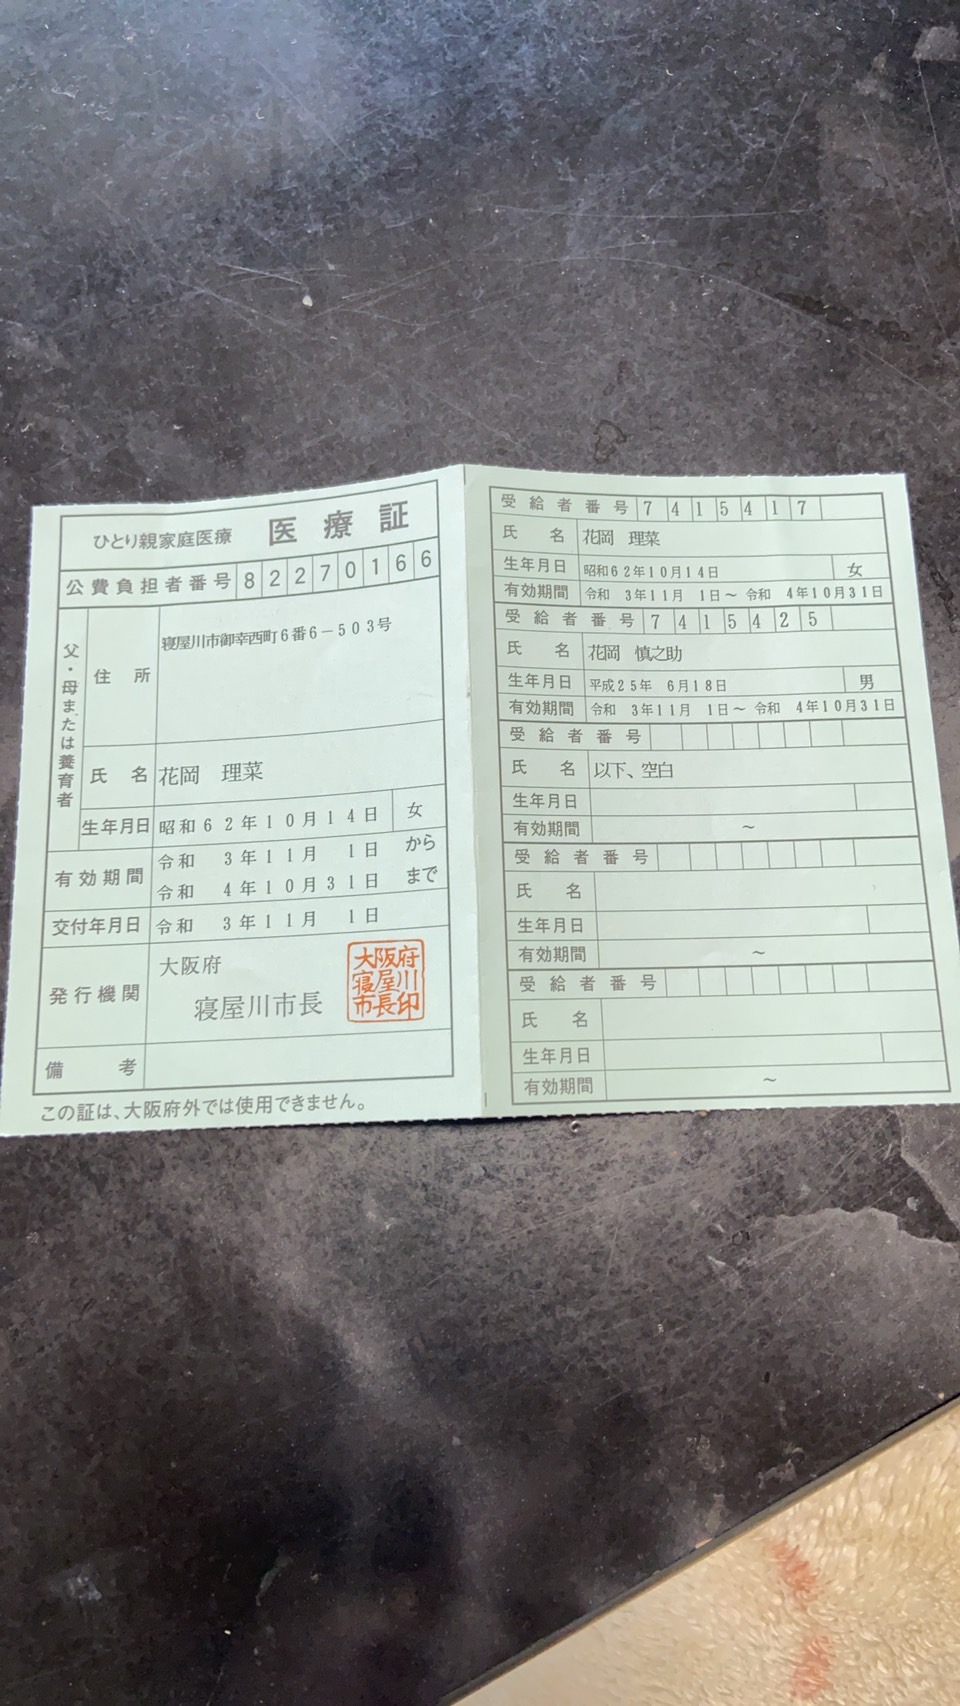 ひとり親家庭医療 医療証
公費負担者番号 82270166
父・母または養育者
住所 寝屋川市御幸西町6番6-503号
氏名 花岡 理菜
生年月日 昭和62年10月14日 女
有効期間 令和 3年11月 1日 から
令和 4年10月31日 まで
交付年月日 令和 3年11月 1日
発行機関 大阪府
寝屋川市長
大阪府
寝屋川
市長印
備考
この証は、大阪府外では使用できません。
受給者番号 7415417
氏名 花岡 理菜
生年月日 昭和62年10月14日 女
有効期間 令和 3年11月 1日～ 令和 4年10月31日
受給者番号 7415425
氏名 花岡 慎之助
生年月日 平成25年 6月18日 男
有効期間 令和 3年11月 1日～ 令和 4年10月31日
受給者番号
氏名 以下、空白
生年月日
有効期間 ～
受給者番号
氏名
生年月日
有効期間 ～
受給者番号
氏名
生年月日
有効期間 ～